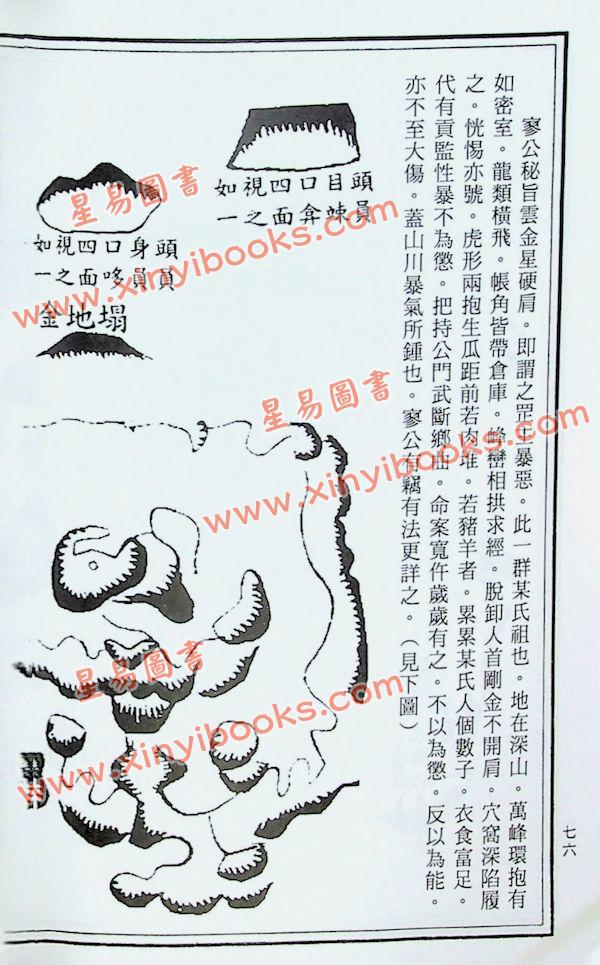 寥公秘旨雲金星硬肩。即謂之罡土暴惡。此一群某氏祖也。地在深山。萬峰環抱有
如密室。龍類橫飛。帳角皆帶倉庫。峰巒相拱求經。脫卸人首剛金不開肩。穴窩深陷履
之。恍惕亦號。虎形兩抱生瓜距前若肉堆。若豬羊者。累累某氏人個數子。衣食富足。
代有貢監性暴不為懲。把持公門武斷鄉曲。命案寬仵歲歲有之。不以為懲。反以為能。
亦不至大傷。蓋山川暴氣所鍾也。寥公有竊有法更詳之。（見下圖）
如視四口目頭
一之面弇竦員
如視四口身頭
一之面哆員員
金地塌
七六
星易圖書
www.xinyibooks.com
星易圖書
www.xinyibooks.com
星易圖書
www.xinyibooks.com